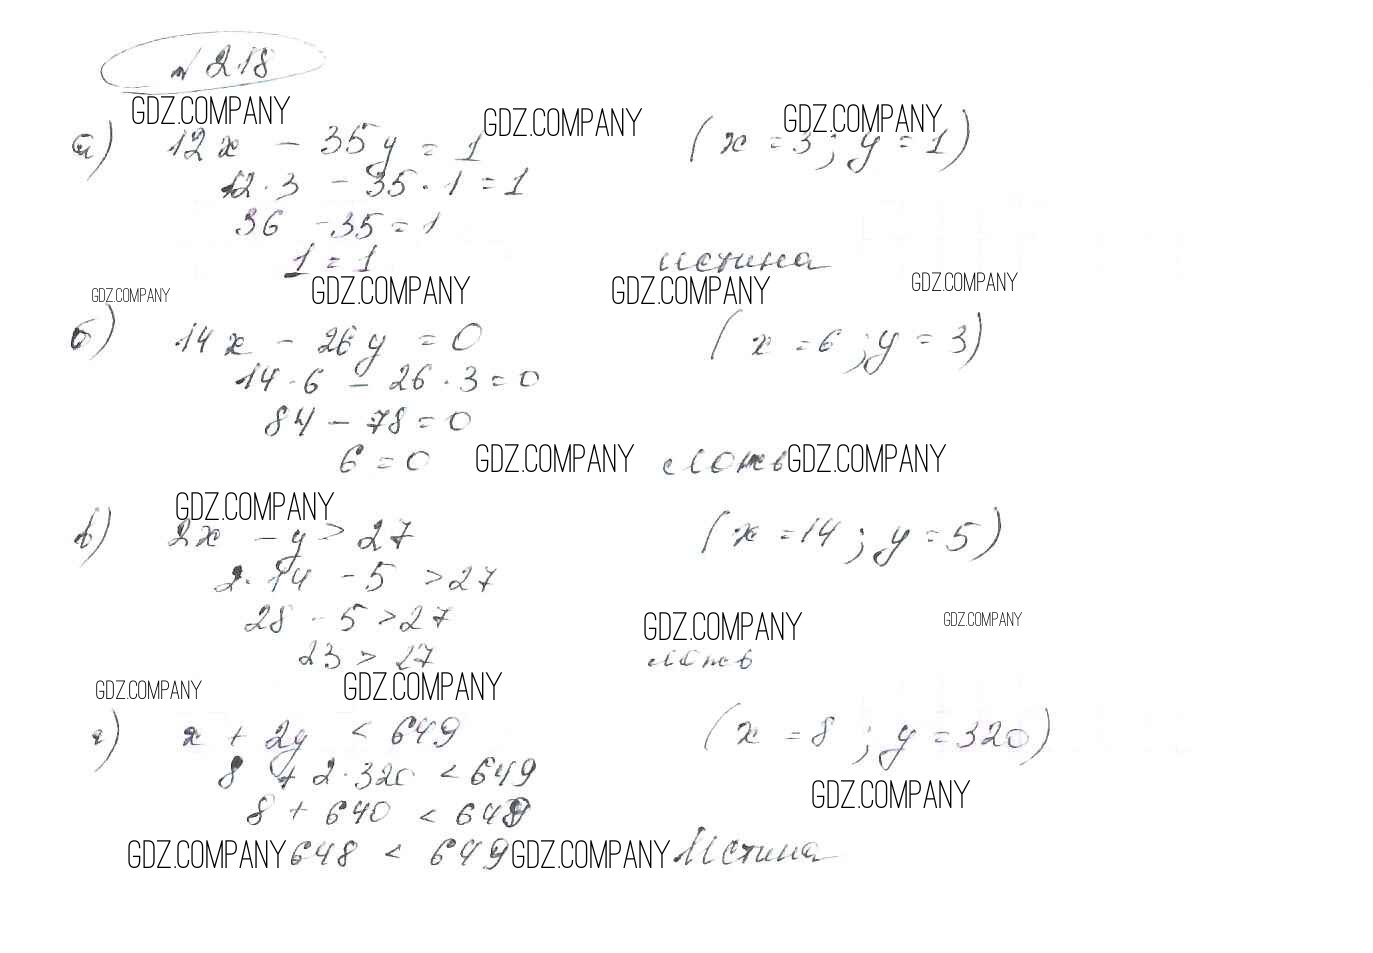 № 218
GDZ.COMPANY GDZ.COMPANY GDZ.COMPANY
а) 12x - 35y = 1 (x = 3; y = 1)
12·3 - 35·1 = 1
36 - 35 = 1
1 = 1 истина
GDZ.COMPANY GDZ.COMPANY GDZ.COMPANY GDZ.COMPANY
б) 14x - 26y = 0 (x = 6; y = 3)
14·6 - 26·3 = 0
84 - 78 = 0
6 = 0 GDZ.COMPANY ложь GDZ.COMPANY
GDZ.COMPANY
в) 2x - y > 27 (x = 14; y = 5)
2·14 - 5 > 27
28 - 5 > 27
GDZ.COMPANY GDZ.COMPANY
23 > 27 ложь
GDZ.COMPANY GDZ.COMPANY
г) x + 2y < 649 (x = 8; y = 320)
8 + 2·320 < 649
GDZ.COMPANY
8 + 640 < 649
GDZ.COMPANY 648 < 649 GDZ.COMPANY Истина